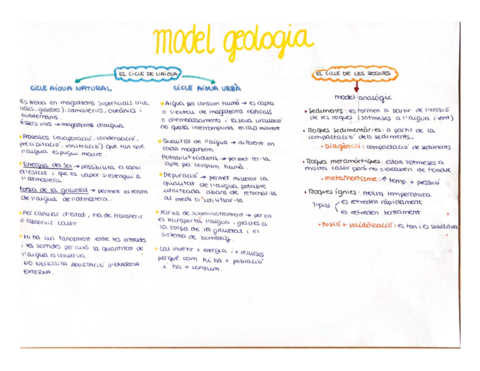 model geologia
EL CICLE DE L'AIGUA
CICLE AIGUA NATURAL
Es troba en magatzems superficials (rius,
llacs, glaceres), atmosfèrics, oceànics i
subterranis.
Éssers vius → magatzems d'aigua
Processos (evaporació, condensació,
precipitació, infiltració) que fan que
l'aigua es pugui moure.
Energia del sol → possibilita el canvi
d'estat i que el vapor s'elevi
a l'atmosfera.
Força de la gravetat → permet el retorn
de l'aigua de l'atmosfera.
Per canviar d'estat, ha de transferir
o absorvir calor
Hi ha un tancament entre les entrades
i les sortides perquè la quantitat de
l'aigua es conserva.
NO NECESSITA APORTACIÓ D'ENERGIA
EXTERNA.
CICLE AIGUA URBÀ
Aigua pel consum humà → es capta
o s'extreu de magatzems naturals
o d'embassaments i la seva circulació
no queda interrompuda en cap moment
Qualitat de l'aigua → diferent en
cada magatzem.
Potabilitzadora → permet fer-la
apte pel consum humà.
Depuració → permet millorar la
qualitat de l'aigua potable
utilitzada abans de retornar-la
al medi o reutilitzar-la.
Xarxa de subministrament → per on
es transporta l'aigua, gràcies a
la força de la gravetat i el
sistema de bombeig.
Cal invertir + energia i + recursos
perquè com hi ha + població
i ha + consum
EL CICLE DE LES ROQUES
model analògic
Sediments: es formen a partir de l'erosió
de les roques (sotmeses a l'aigua i vent)
Roques sedimentàries: a partir de la
compactació dels sediments.
Diagènesi: compactació de sediments
Roques metamòrfiques: estan sotmeses a
molta calor però no s'acaben de fondre
metamorfisme: ↑ temp. + pressió
Roques ígnies: medra temperatura
Tipus
es refreden ràpidament
es refreden lentament
Fusió + solidificació: es fon i es solidifica